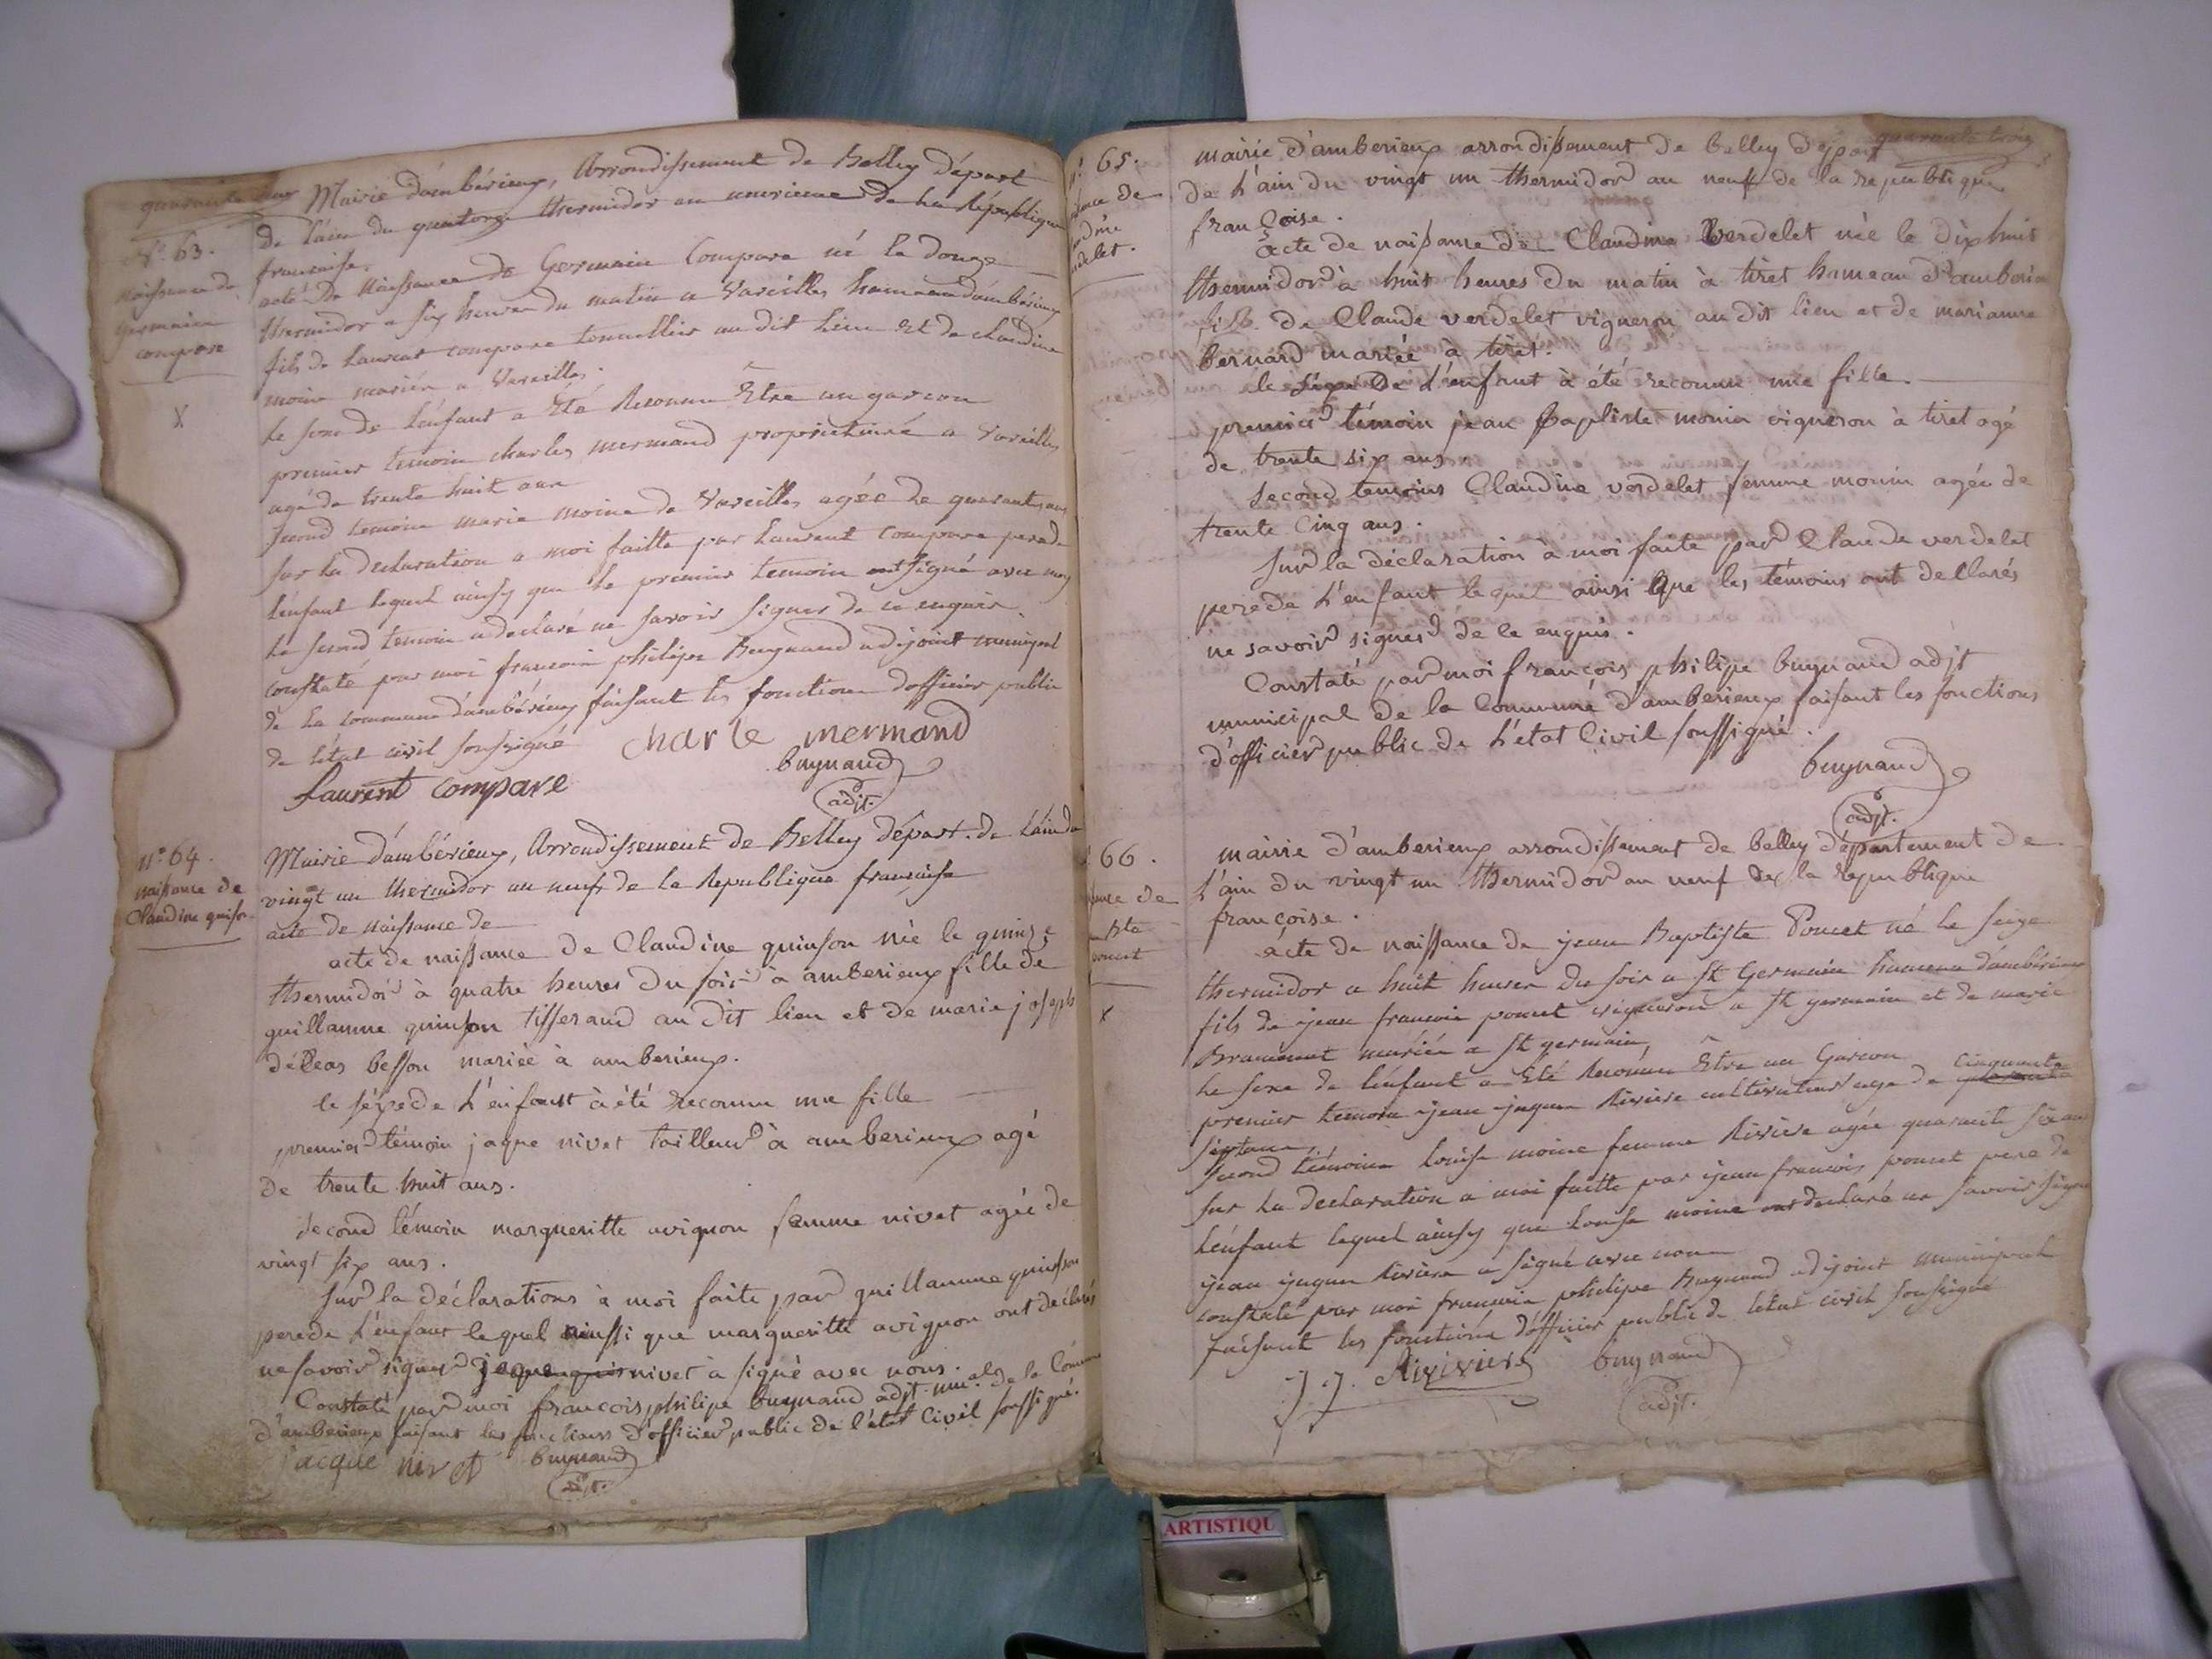 quarante deux
Mairie d'ambérieux, Arrondissement de Belley Départ
de l'ain du quatorze thermidor an neuvieme de la République
francaise.
N° 63.
Naissance de
germain
compare
acte de Naissance de Germain Compare né le douze
thermidor a six heures du matin a Vareilles hameau d'ambérieux
fils de Laurent compare tonnellier au dit lieu Et de claudine
moine mariés a Vareilles.
Le sexe de l'enfant a Eté Reconnu Etre un garcon
premier temoin charles mermand proprietaire a Vareilles
agé de trente huit ans
second temoin marie moine de Vareilles agée de quarante ans
sur la declaration a moi faitte par Laurent Compare pere de
l'enfant lequel ainsy que le premier temoin ont signé avec moy
Le second temoin a declaré ne savoir signer de ce enquis
constaté par moi francois philipe Buynand adjoint municipal
de la commune d'ambérieux faisant les fonctions d'officier public
de l'état civil soussigné
charle mermand
buynand
adjt.
Laurent compare
N° 64.
naissance de
Claudine quinson
Mairie d'ambérieux, Arrondissement de Belley départ. de l'ain du
vingt un thermidor an neuf de la Republique francaise
acte de naissance de
acte de naissance de Claudine quinson née le quinze
thermidor à quatre heures du soir à amberieux fille de
guillaume quinson tisserand au dit lieu et de marie joseph
besson mariée à amberieux.
le sexe de l'enfant à été reconnu une fille
premier témoin jaque nivet tailleur à amberieux agé
de trente huit ans.
second témoin margueritte avignon femme nivet agée de
vingt six ans.
sur la déclarations à moi faite par guillaume quinson
pere de l'enfant lequel ainssi que margueritte avignon ont declarés
ne savoir signer nivet à signé avec nous.
Constaté par moi francois philipe buynand adjt. mual. de la Comune
d'amberieux faisant les fonctions d'officier public de l'état Civil soussigné.
jacque nivet
buynand
adjt.
quarante trois
N° 65.
mairie d'amberieux arrondissement de belley depart
de l'ain du vingt un thermidor an neuf de la republique
françoise.
acte de naissance de Claudine Verdelet née le dix huit
thermidor à huit heures du matin à tiret hameau d'amberieux
fille de Claude verdelet vigneron au dit lieu et de marianne
bernard mariée à tiret.
le sexe de l'enfant à été reconnu une fille.
premier témoin jean Baptiste monin vigneron à tiret agé
de trente six ans.
second temoins Claudine verdelet femme monin agée de
trente cinq ans.
sur la déclaration à moi faite par Claude verdelet
pere de l'enfant lequel ainsi que les témoins ont dellarés
ne savoir signer de ce enquis.
Constaté par moi françois philipe buynand adjt
municipal de la Commune d'amberieux faisant les fonctions
d'officier public de l'état Civil soussigné.
buynand
adjt.
66.
mairie d'amberieux arrondissement de belley département de
l'ain du vingt un thermidor an neuf de la republique
françoise.
acte de naissance de jean Baptiste Poncet né le seize
thermidor a huit heures du soir a St Germain hameau d'ambérieux
fils de jean francois poncet vigneron a St germain et de marie
Bramment mariés a St germain,
Le sexe de l'enfant a Eté Reconnu Etre un Garcon
premier temoin jean jaques Riviere cultivateur age de cinquante
sept ans.
second témoin Louise moine femme Riviere agée quarante six ans
sur la declaration a moi faitte par jean francois poncet pere de
l'enfant lequel ainsy que Louise moine ont declaré ne savoir signer
jean jaques Riviere a signé avec nous
constaté par moi francois philipe Buynand adjoint municipal
faisant les fonctions d'officier public de l'état civil soussigné
J. J. Riviviere
buynand
adjt.
ARTISTIQU